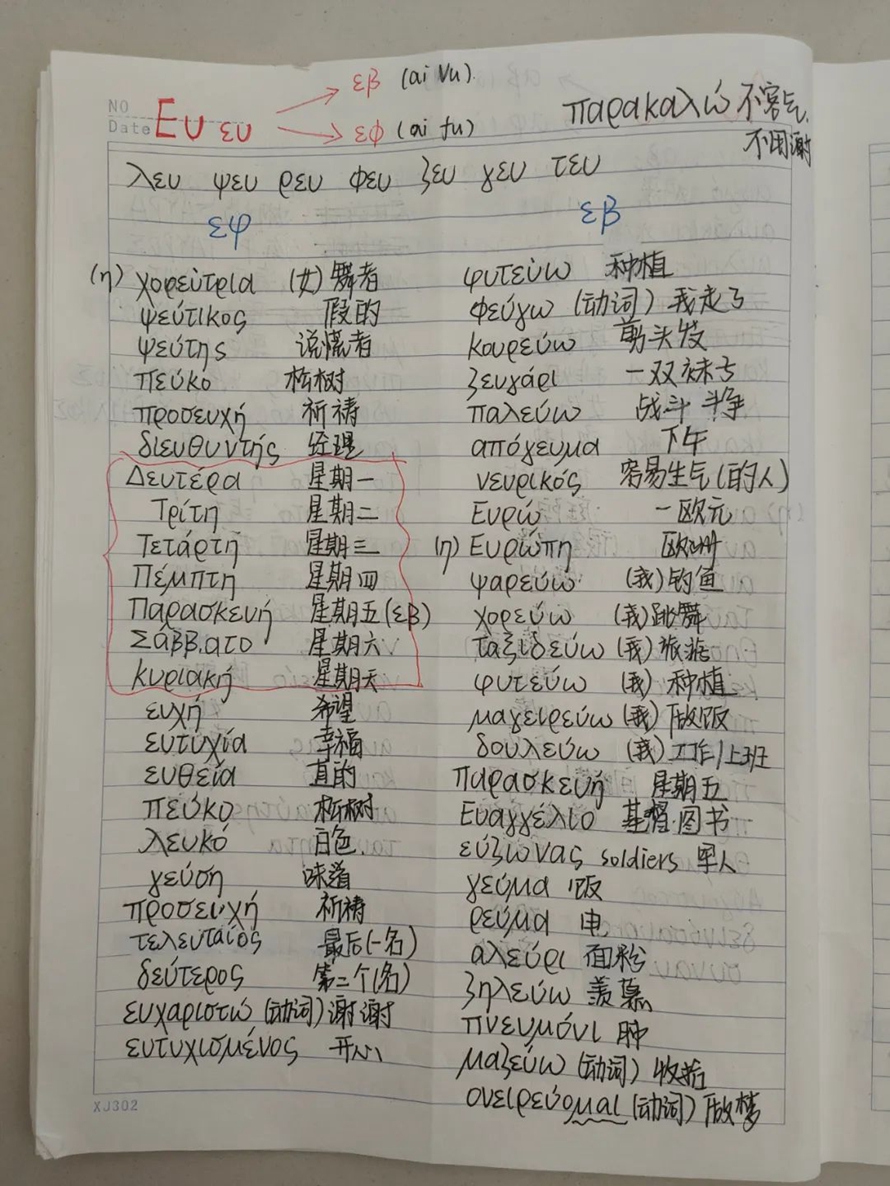 NO
Date
Ευ ευ
εβ (ai vu)
εφ (ai fu)
παρακαλώ 不客气.
不用谢
λευ ψευ ρευ φευ ξευ γευ τευ
εφ
(η) χορεύτρια (女)舞者
ψεύτικος 假的
ψεύτης 说谎者
πεύκο 松树
προσευχή 祈祷
διευθυντής 经理
Δευτέρα 星期一
Τρίτη 星期二
Τετάρτη 星期三
Πέμπτη 星期四
Παρασκευή 星期五(εβ)
Σάββατο 星期六
κυριακή 星期天
ευχή 希望
ευτυχία 幸福
ευθεία 直的
πεύκο 松树
λευκό 白色
γεύση 味道
προσευχή 祈祷
τελευταίος 最后(一名)
δεύτερος 第二个(名)
ευχαριστώ (动词) 谢谢
ευτυχισμένος 开心
εβ
φυτεύω 种植
φεύγω (动词) 我走了
κουρεύω 剪头发
ζευγάρι 一双袜子
παλεύω 战斗 斗争
απόγευμα 下午
νευρικός 容易生气(的人)
Ευρώ 一欧元
(η) Ευρώπη 欧洲
ψαρεύω (我)钓鱼
χορεύω (我)跳舞
ταξιδεύω (我)旅游
φυτεύω (我)种植
μαγειρεύω (我)做饭
δουλεύω (我)工作/上班
παρασκευή 星期五
Ευαγγέλιο 基督图书
εύζωνας soldiers 军人
γεύμα 饭
ρεύμα 电
αλεύρι 面粉
ζηλεύω 羡慕
πνευμόνι 肺
μαζεύω (动词) 收拾
ονειρεύομαι (动词) 做梦
XJ302